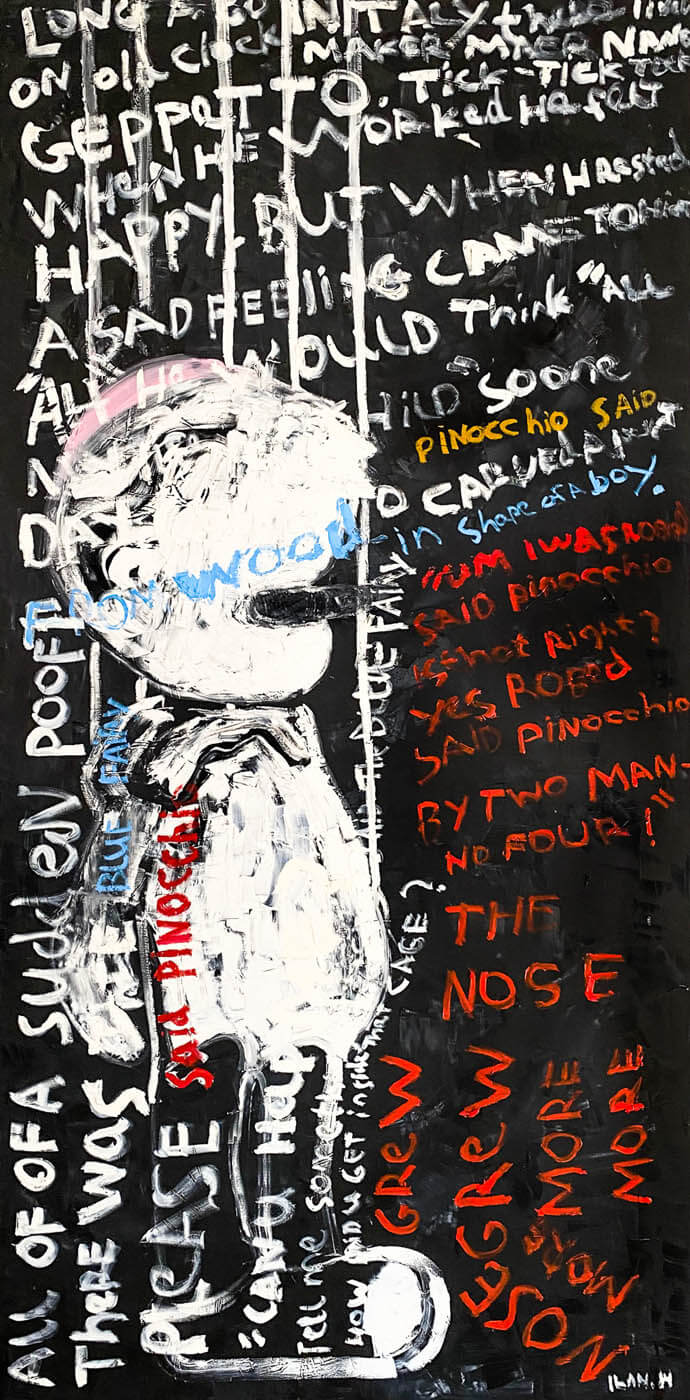 LONG AGO IN ITALY there
ON old Clock MAKER
GEPPETTO. TICK-TICK TOCK
WHEN HE WORKed He felt
HAPPY. BUT WHEN H Rested
A SAD FEELiNG CAME TO
"AH He WOULD Think "ALL
CHILD" SO ONE
PINOCCHIO SAID
DAY
FROM WOOD-in Shape of A boy.
"UM I WAS
SAID Pinocchio
is that Right?
Yes ROBED
SAID PINOCCHIO
BY TWO MAN-
NO FOUR!"
THE
NOSE
GREW
NOSE GREW
MORE
MORE
ALL OF OF A SUDDEN POOF!
THERE WAS THE BLUE FAIRY
PLEASE Said PINOCCHIO
"CAN U HELP
Tell me
HOW DID U GET inside that CAGE? SAID THE BLUE FAIRY
ILAN.H